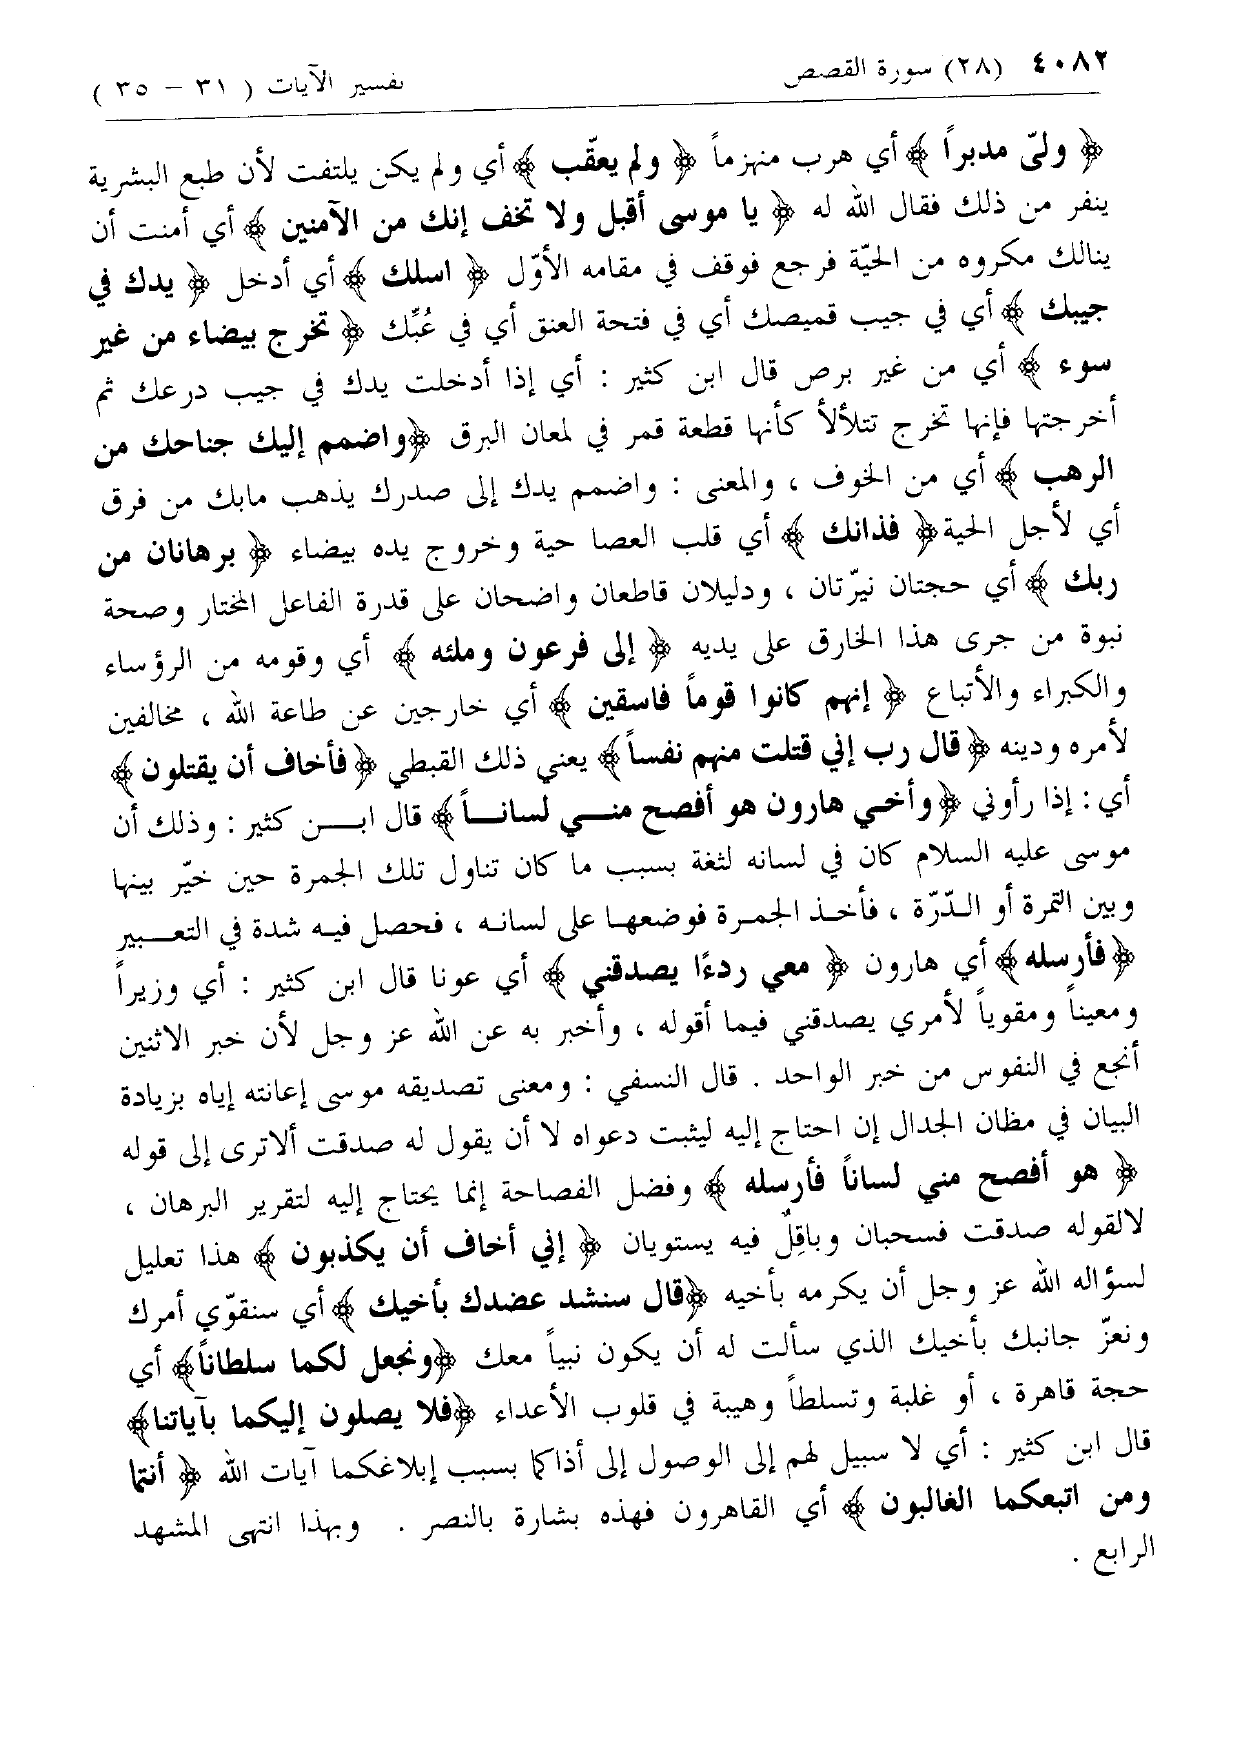 ٤٠٨٢ (٢٨) سورة القصص تفسير الآيات ( ٣١ – ٣٥ )
﴿ ولّى مدبراً ﴾ أي هرب منهزماً ﴿ ولم يعقّب ﴾ أي ولم يكن يلتفت لأن طبع البشرية
ينفر من ذلك فقال الله له ﴿ يا موسى أقبل ولا تخف إنك من الآمنين ﴾ أي أمنت أن
ينالك مكروه من الحيّة فرجع فوقف في مقامه الأوّل ﴿ اسلك ﴾ أي أدخل ﴿ يدك في
جيبك ﴾ أي في جيب قميصك أي في فتحة العنق أي في عُبِّك ﴿ تخرج بيضاء من غير
سوء ﴾ أي من غير برص قال ابن كثير : أي إذا أدخلت يدك في جيب درعك ثم
أخرجتها فإنها تخرج تتلألأ كأنها قطعة قمر في لمعان البرق ﴿واضمم إليك جناحك من
الرهب ﴾ أي من الخوف ، والمعنى : واضمم يدك إلى صدرك يذهب مابك من فرق
أي لأجل الحية﴿ فذانك ﴾ أي قلب العصا حية وخروج يده بيضاء ﴿ برهانان من
ربك ﴾ أي حجتان نيّرتان ، ودليلان قاطعان واضحان على قدرة الفاعل المختار وصحة
نبوة من جرى هذا الخارق على يديه ﴿ إلى فرعون وملئه ﴾ أي وقومه من الرؤساء
والكبراء والأتباع ﴿ إنهم كانوا قوماً فاسقين ﴾ أي خارجين عن طاعة الله ، مخالفين
لأمره ودينه ﴿قال رب إني قتلت منهم نفساً﴾ يعني ذلك القبطي ﴿فأخاف أن يقتلون﴾
أي : إذا رأوني ﴿وأخي هارون هو أفصح منـي لسانـاً﴾ قال ابـن كثير : وذلك أن
موسى عليه السلام كان في لسانه لثغة بسبب ما كان تناول تلك الجمرة حين خيّر بينها
وبين التمرة أو الـدّرّة ، فأخـذ الجمـرة فوضعهـا على لسانـه ، فحصل فيـه شدة في التعـبير
﴿فأرسله﴾ أي هارون ﴿ معي ردءًا يصدقني ﴾ أي عونا قال ابن كثير : أي وزيراً
ومعيناً ومقوياً لأمري يصدقني فيما أقوله ، وأخبر به عن الله عز وجل لأن خبر الاثنين
أنجع في النفوس من خبر الواحد . قال النسفي : ومعنى تصديقه موسى إعانته إياه بزيادة
البيان في مظان الجدال إن احتاج إليه ليثبت دعواه لا أن يقول له صدقت ألاترى إلى قوله
﴿ هو أفصح مني لساناً فأرسله ﴾ وفضل الفصاحة إنما يحتاج إليه لتقرير البرهان ،
لالقوله صدقت فسحبان وباقِلٌ فيه يستويان ﴿ إني أخاف أن يكذبون ﴾ هذا تعليل
لسؤاله الله عز وجل أن يكرمه بأخيه ﴿قال سنشد عضدك بأخيك ﴾ أي سنقوّي أمرك
ونعزّ جانبك بأخيك الذي سألت له أن يكون نبياً معك ﴿ونجعل لكما سلطاناً﴾ أي
حجة قاهرة ، أو غلبة وتسلطاً وهيبة في قلوب الأعداء ﴿فلا يصلون إليكما بآياتنا﴾
قال ابن كثير : أي لا سبيل لهم إلى الوصول إلى أذاكما بسبب إبلاغكما آيات الله ﴿ أنتما
ومن اتبعكما الغالبون ﴾ أي القاهرون فهذه بشارة بالنصر . وبهذا انتهى المشهد
الرابع .